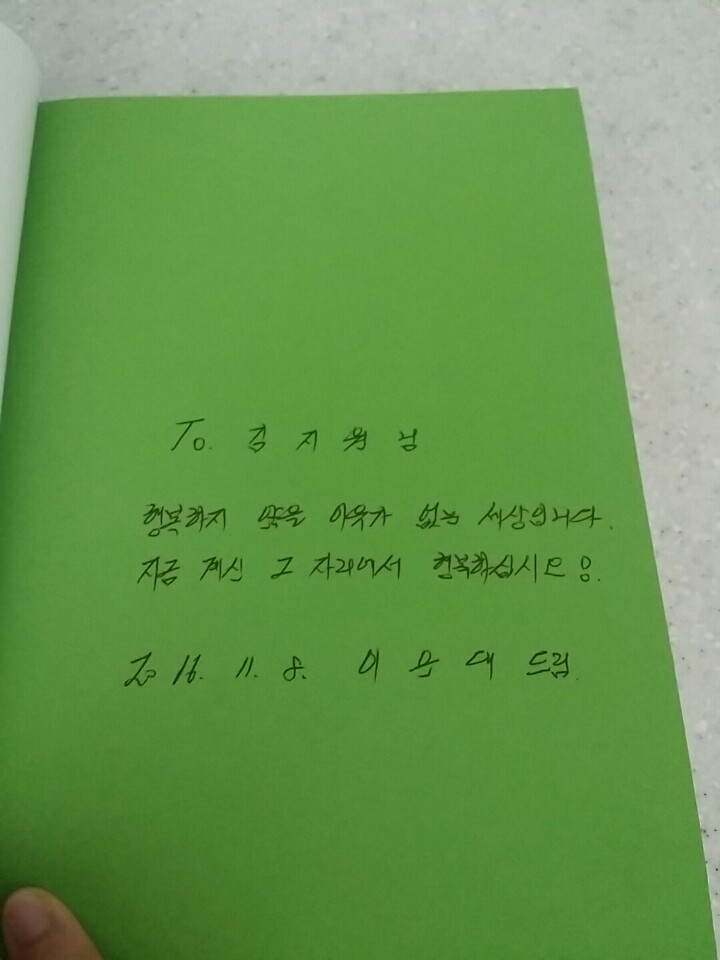 To. 김 지 원 님
행복하지 않을 이유가 없는 세상입니다.
지금 계신 그 자리에서 행복하십시오
2016. 11. 8. 이 문 대 드림